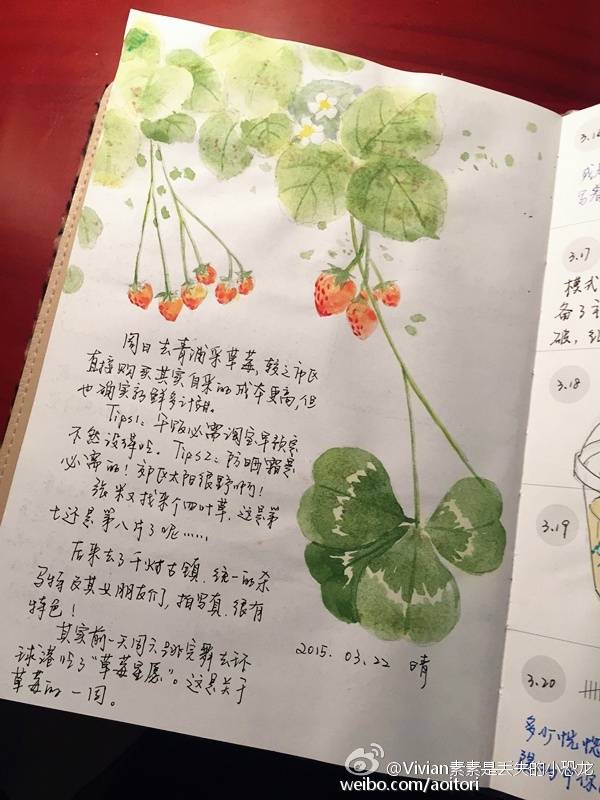 周日去青浦采草莓，较之市区
直接购买其实自采的成本更高，但
也确实新鲜多汁甜。
Tips1：午饭必需淘宝早预定
不然没得吃。Tips2：防晒霜是
必需的！郊区太阳很野啊！
张米又找来个四叶草，这是第
七还是第八片了呢……
后来去了千灯古镇，统一的杀
马特及其女朋友们，拍写真，很有
特色！
其实前一天周六跳完舞去环
球港吃了“草莓星愿”。这是关于
草莓的一周。
2015. 03. 22 晴
3.14
3.17
模我
备了
破，
3.18
3.19
3.20
多少恍惚
@Vivian素素是丢失的小恐龙
weibo.com/aoitori